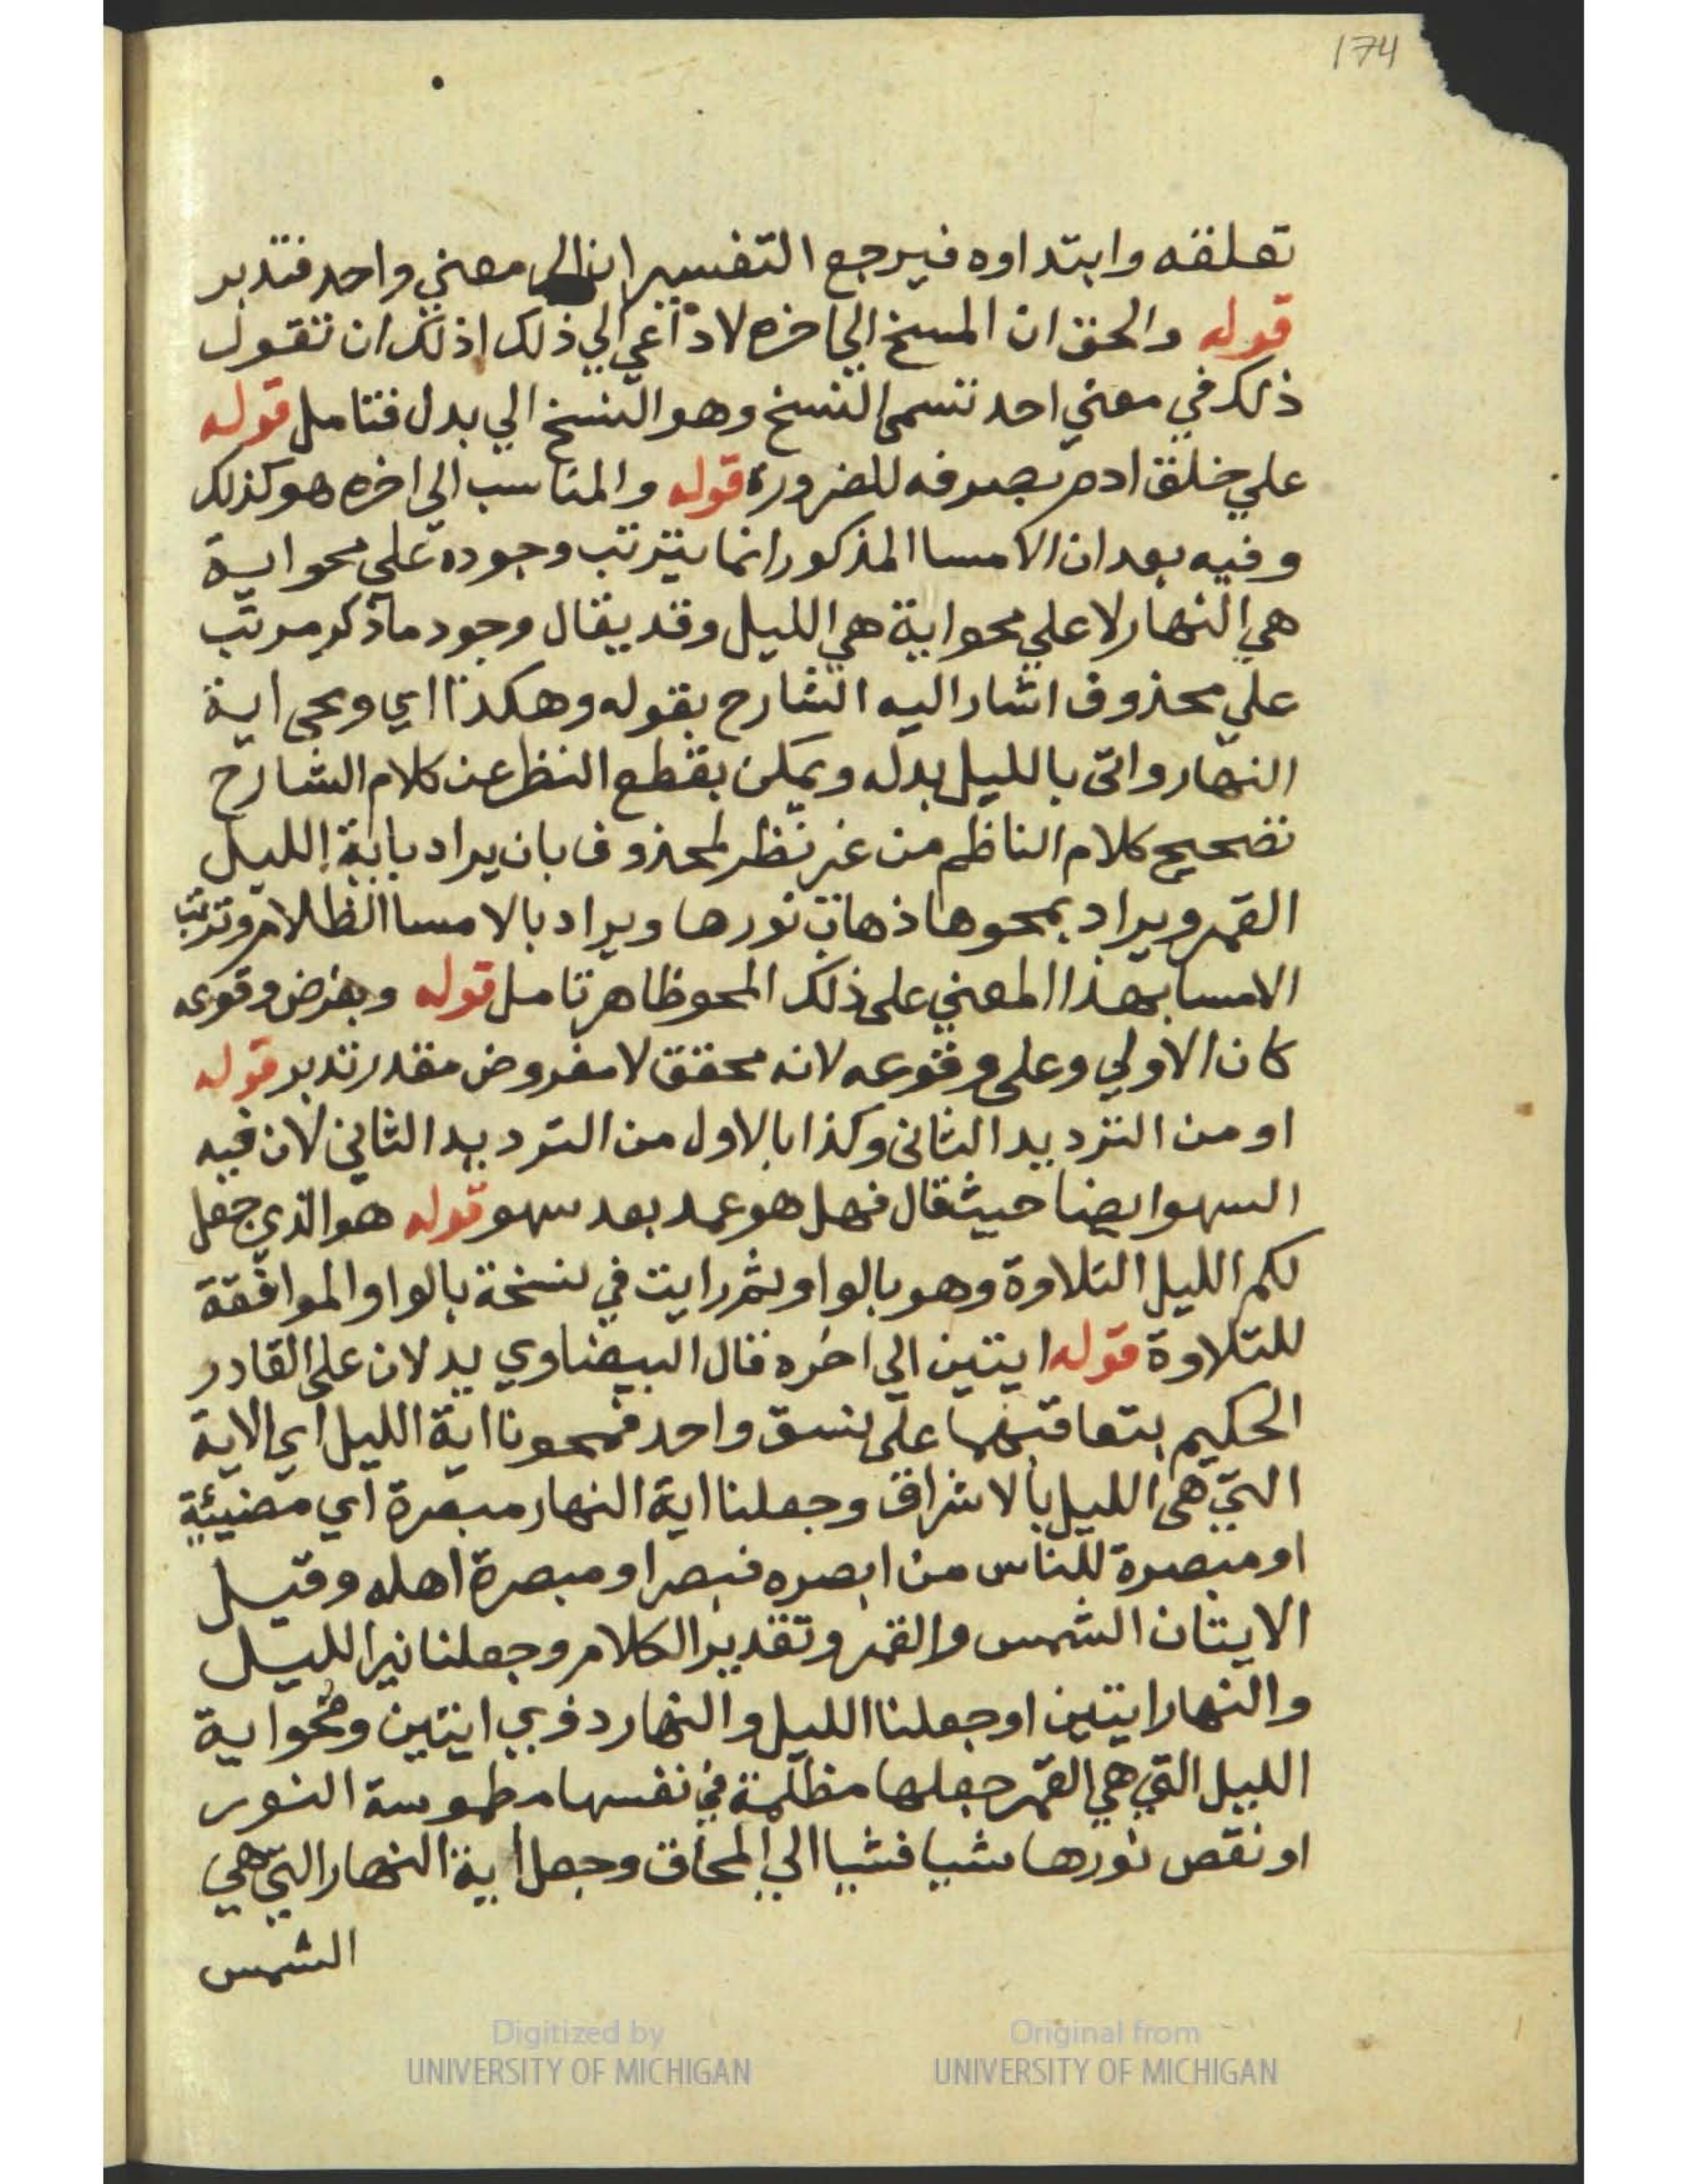 174
تعلقه وابتداوه فيرجع التفسيران الى معني واحد فتدبر
قوله والحق ان المسخ الي اخره لا داعي الي ذلك اذ لك ان تقول
ذلك في معني احد تسمى النسخ وهو النسخ الي بدل فتامل قوله
علي خلق ادم بصرفه للضرورة قوله والمناسب الي اخره هو كذلك
وفيه بعد ان الامسا المذكور انما يترتب وجوده علي محو اية
هي النهار لا علي محو اية هي الليل وقد يقال وجود ما ذكر مرتب
علي محذوف اشار اليه الشارح بقوله وهكذا اي ومحى اية
النهار واتى بالليل بدله ويمكن بقطع النظر عن كلام الشارح
تصحيح كلام الناظم من غير نظر لمحذوف بان يراد باية الليل
القمر ويراد بمحوها ذهاب نورها ويراد بالامسا الظلام وترتب
الامسا بهذا المعني على ذلك المحو ظاهر تامل قوله وبفرض وقوعه
كان الاولي وعلى وقوعه لانه محقق لا مفروض مقدر تدبر قوله
او من الترديد الثانى وكذا بالاول من الترديد الثاني لان فيه
السهو ايضا حيث قال فهل هو عمد بعد سهو قوله هو الذي جعل
لكم الليل التلاوة وهو بالواو ثم رايت في نسخة بالواو الموافقة
للتلاوة قوله ايتين الي اخره قال البيضاوي يدلان على القادر
الحكيم بتعاقبهما على نسق واحد فمحونا اية الليل اي الاية
التي هى الليل بالاشراق وجعلنا اية النهار مبصرة اي مضيئة
او مبصرة للناس من ابصره فبصر او مبصرة اهله وقيل
الايتان الشمس والقمر وتقدير الكلام وجعلنا نير الليل
والنهار ايتين او جعلنا الليل والنهار دذوي ايتين ومحو اية
الليل التي هي القمر جعلها مظلمة في نفسها مطموسة النور
او نقص نورها شيا فشيا الي المحاق وجعل اية النهار التي هي
الشمس
Digitized by
UNIVERSITY OF MICHIGAN
Original from
UNIVERSITY OF MICHIGAN